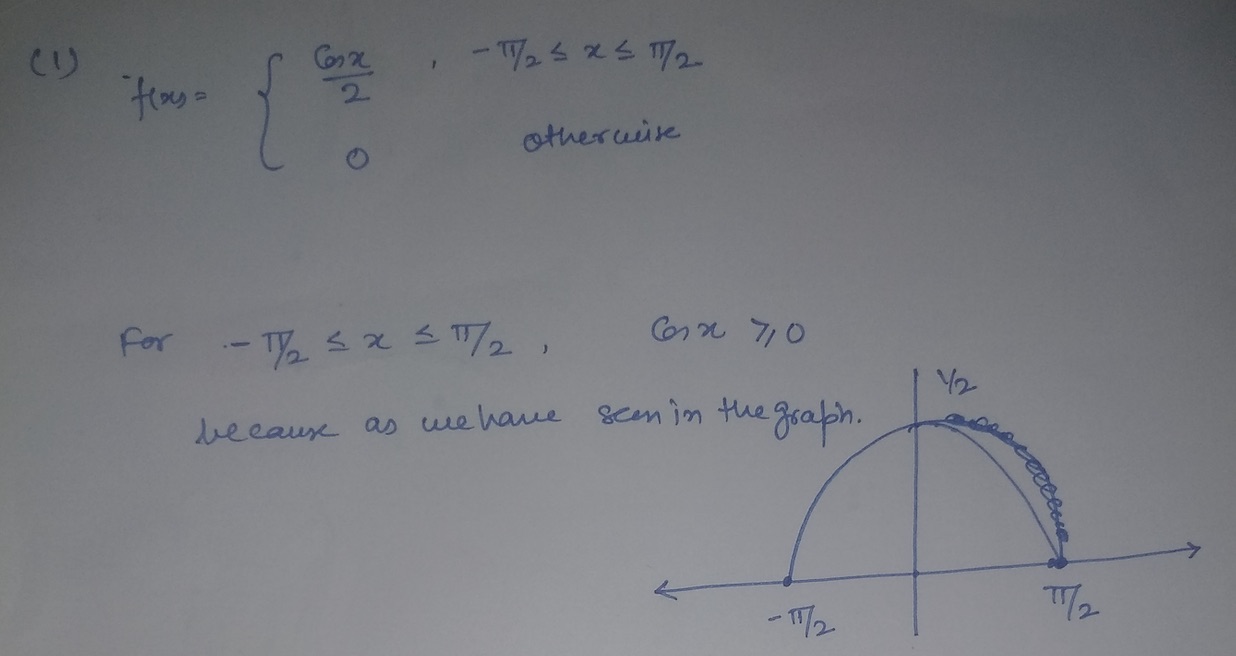 (1) f(x) = { cos x / 2 , -π/2 ≤ x ≤ π/2
0 otherwise
For -π/2 ≤ x ≤ π/2 , cos x ≥ 0
because as we have seen in the graph.
1/2
-π/2 π/2